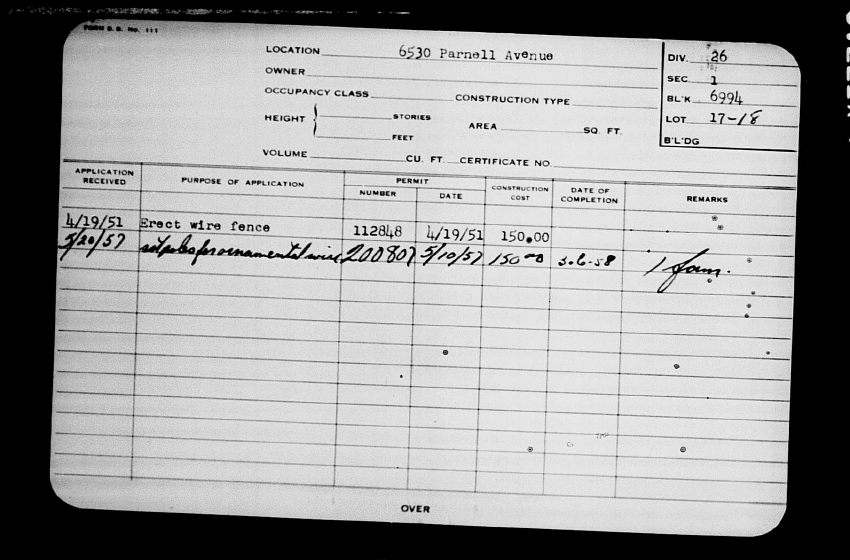 FORM B.B. No. 111
LOCATION 6530 Parnell Avenue
OWNER
OCCUPANCY CLASS CONSTRUCTION TYPE
HEIGHT STORIES
FEET
AREA SQ. FT.
VOLUME CU. FT. CERTIFICATE NO.
DIV. 26
SEC. 1
BL'K 6994
LOT 17-18
B'L'DG
APPLICATION RECEIVED PURPOSE OF APPLICATION PERMIT NUMBER DATE CONSTRUCTION COST DATE OF COMPLETION REMARKS
4/19/51 Erect wire fence 112848 4/19/51 150.00
5/20/57 set poles for ornamental wire 200807 5/10/57 150 00 3-6-58 1 fam.
OVER